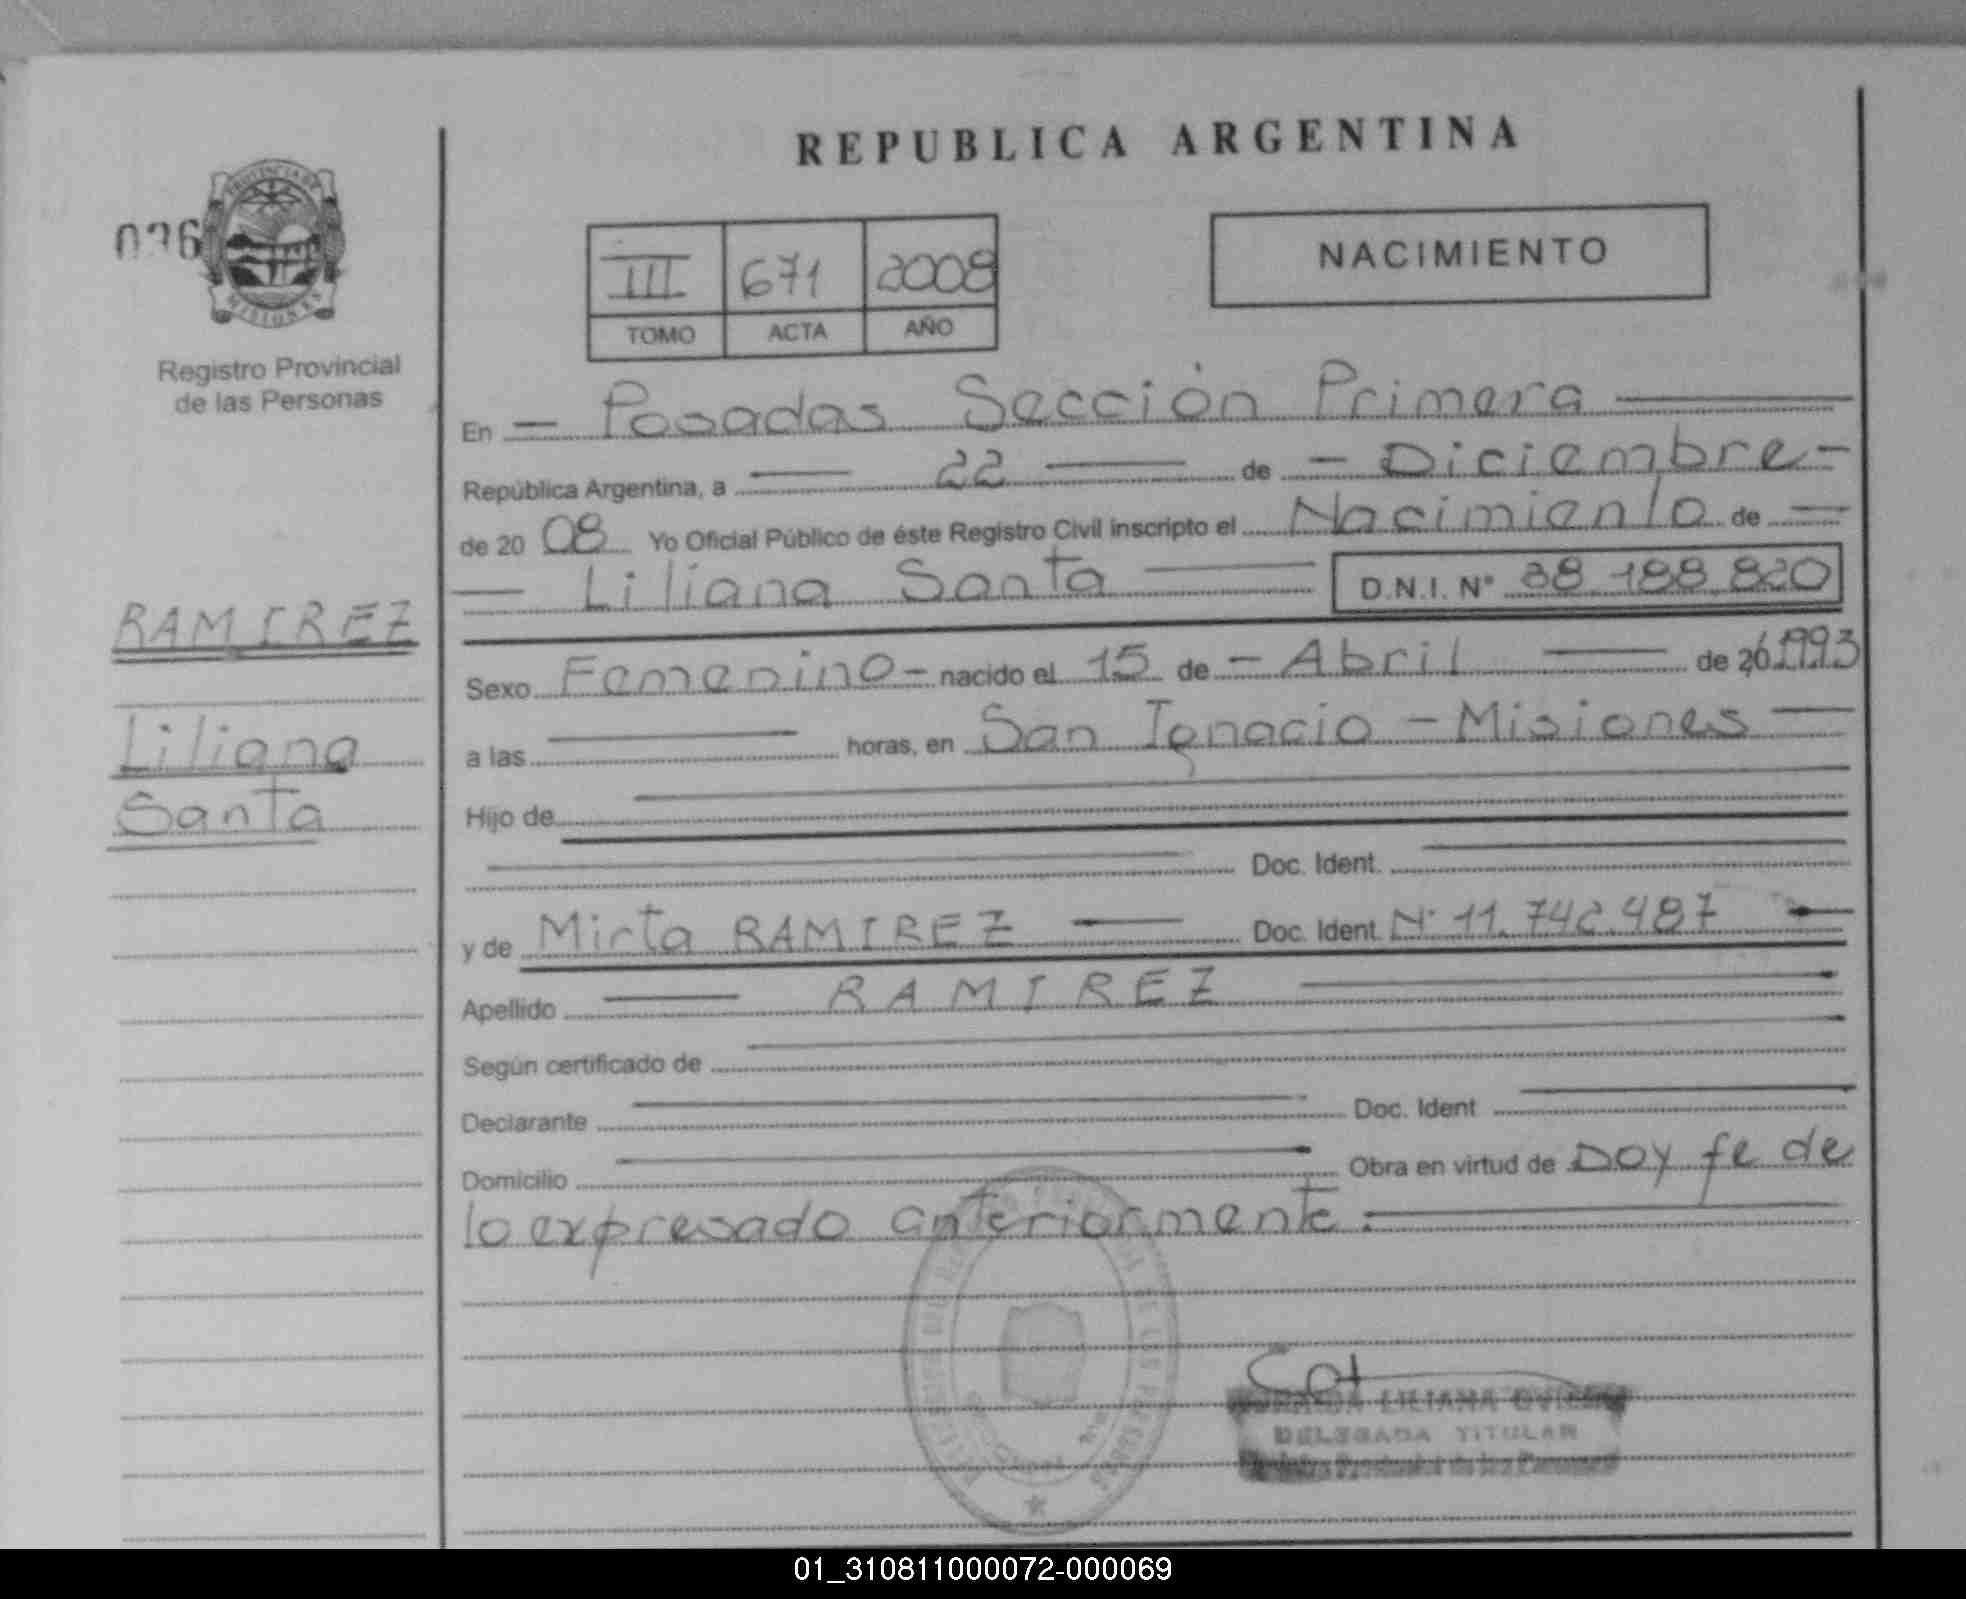 REPUBLICA ARGENTINA
PROVINCIA DE
MISIONES
Registro Provincial
de las Personas
III 671 2008
TOMO ACTA AÑO
NACIMIENTO
En Posadas Sección Primera
República Argentina, a 22 de Diciembre
de 20 08 Yo Oficial Público de éste Registro Civil inscripto el Nacimiento de
Liliana Santa D.N.I. Nº 38.188.820
RAMIREZ
Liliana
Santa
Sexo Femenino nacido el 15 de Abril de 20 1993
a las horas, en San Ignacio - Misiones
Hijo de
Doc. Ident.
y de Mirta RAMIREZ Doc. Ident. Nº 11.742.487
Apellido RAMIREZ
Según certificado de
Declarante Doc. Ident
Domicilio Obra en virtud de Doy fe de
lo expresado anteriormente.
LILIANA
DELEGADA TITULAR
01_310811000072-000069